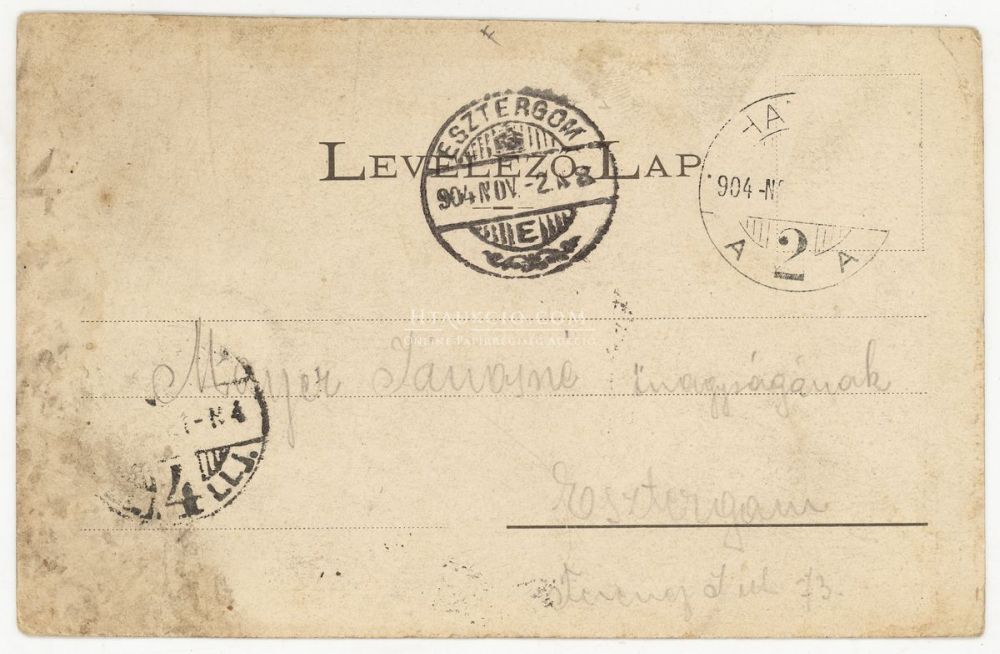 LEVELEZŐ-LAP
ESZTERGOM
904 NOV. -2. N 8
E
HA
904 -N
A 2 A
HTAUKCIO.COM
ONLINE PAPÍRRÉGISÉG AUKCIÓ
Mayer Jánosné
nagyságának
-N 4
4
Esztergom
73.